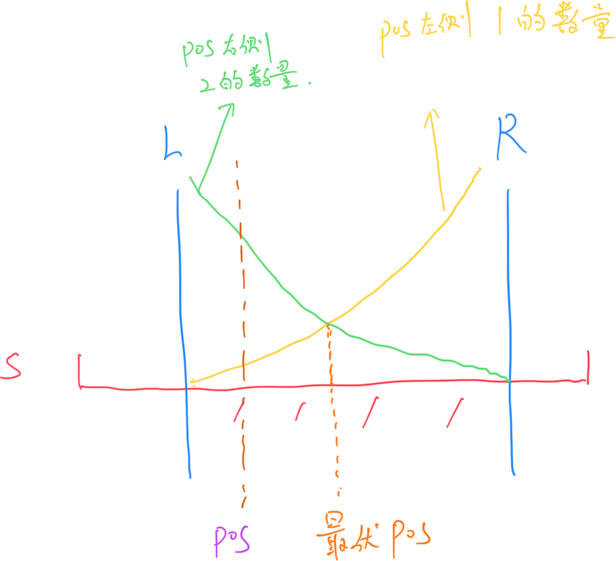 pos右侧
2的数量.
pos左侧 1的数量
L
R
S
/ / / /
pos
最优pos